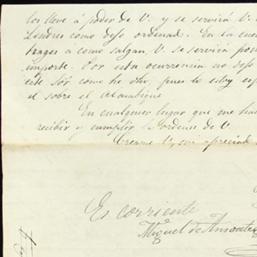 los lleve á poder de V. y se servirá V.
Londres como dejo ordenado. En la cuen
hages a como salgan V. se servirá pon
importe. Por esta ocurrencia no dejo
este Sor. como he dho, pues le estoy esp
el sobre el
En cualquier lugar que me ha
recibir y cumplir las ordenes de V.
Creame
Es corriente
Miguel de